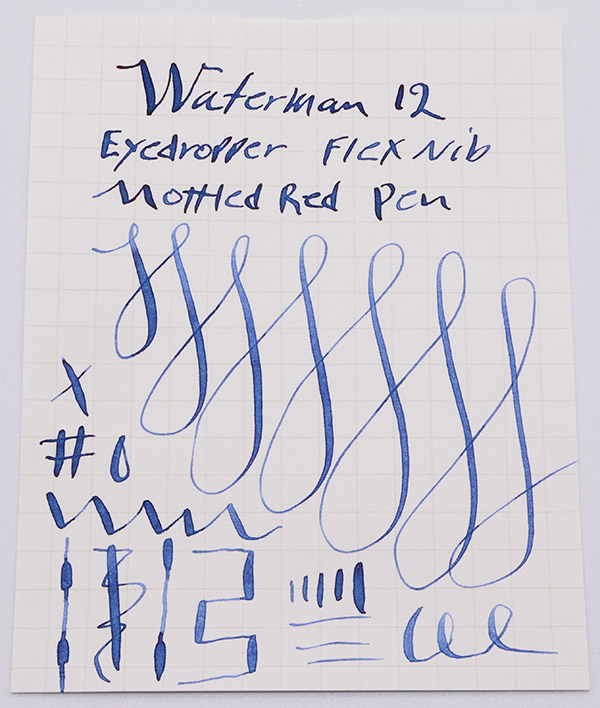 Waterman 12
Eyedropper Flex Nib
Mottled Red Pen
X
# 0